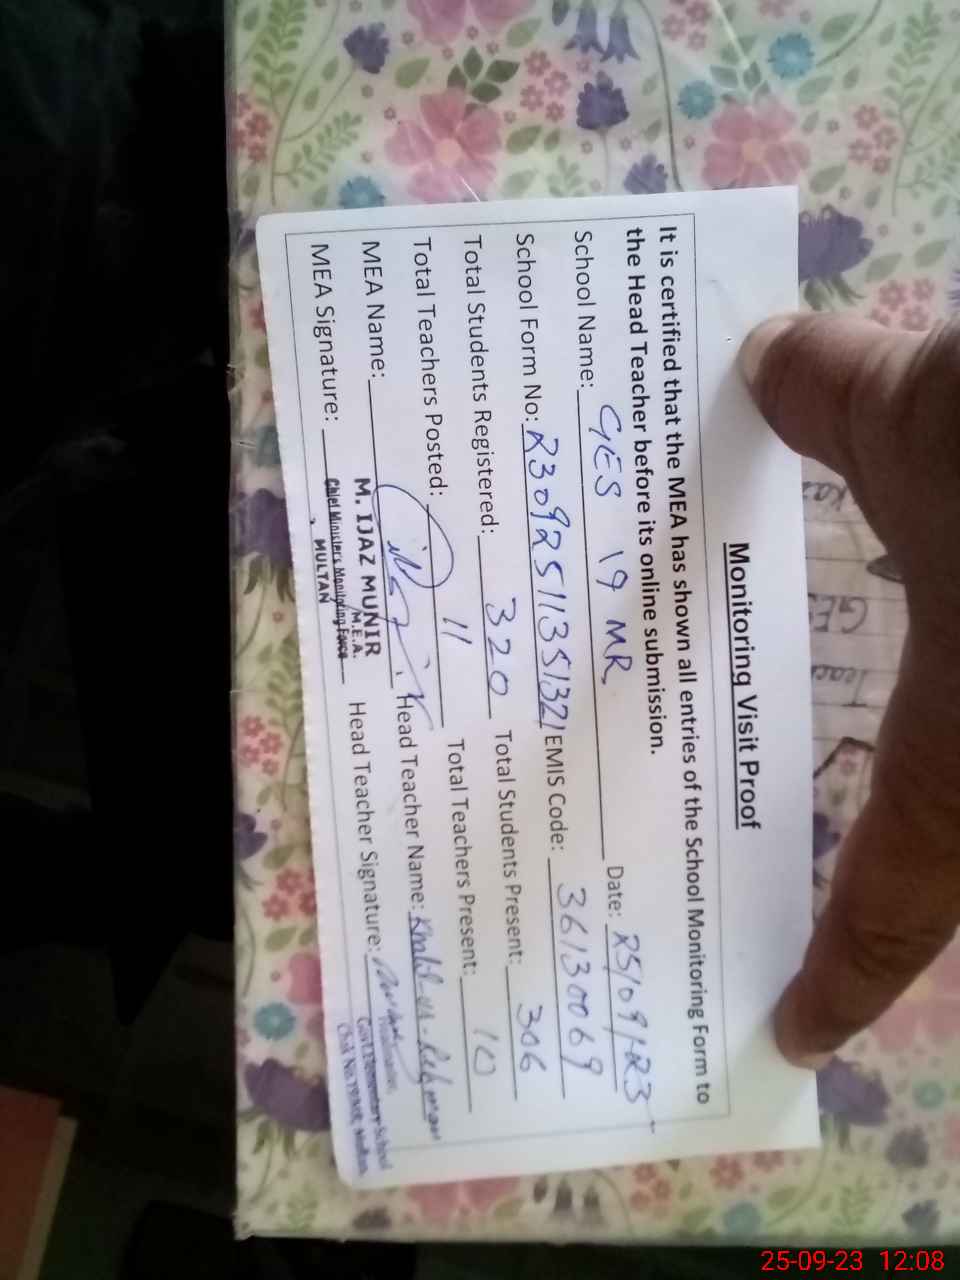 Monitoring Visit Proof
It is certified that the MEA has shown all entries of the School Monitoring Form to
the Head Teacher before its online submission.
School Name: GES 19 MR Date: 25/09/-23
School Form No: 23092511351321 EMIS Code: 36130069
Total Students Registered: 320 Total Students Present: 306
Total Teachers Posted: 11 Total Teachers Present: 10
MEA Name: Head Teacher Name: Khalil-ur-Rehman
M. IJAZ MUNIR
M.E.A.
MEA Signature: Head Teacher Signature:
Chief Minister's Monitoring Force
MULTAN
Govt. Elementary School
Chak No. 19 MR, Multan
GES
Teac
25-09-23 12:08